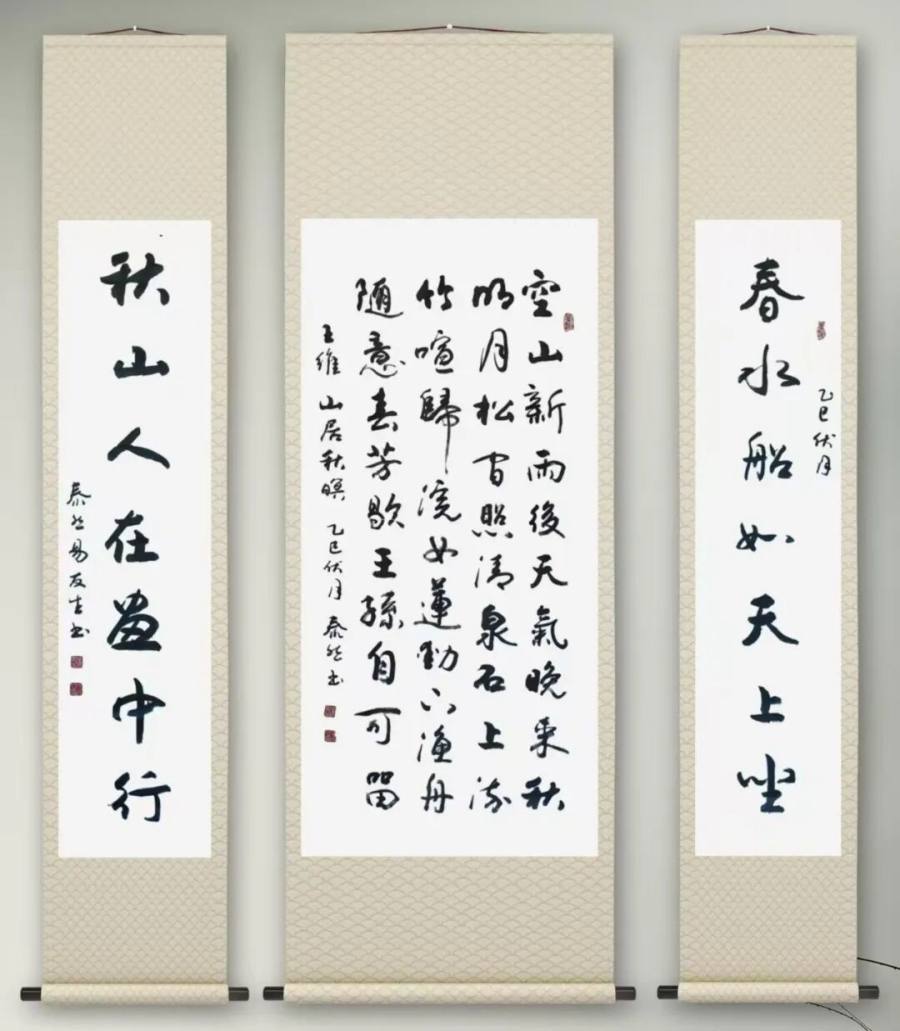 乙巳伏月
春水船如天上坐
空山新雨後天氣晚来秋
明月松间照清泉石上流
竹喧歸浣女蓮動下漁舟
随意春芳歇王孫自可留
王維 山居秋暝 乙巳伏月 泰然书
秋山人在畫中行
泰然易友书